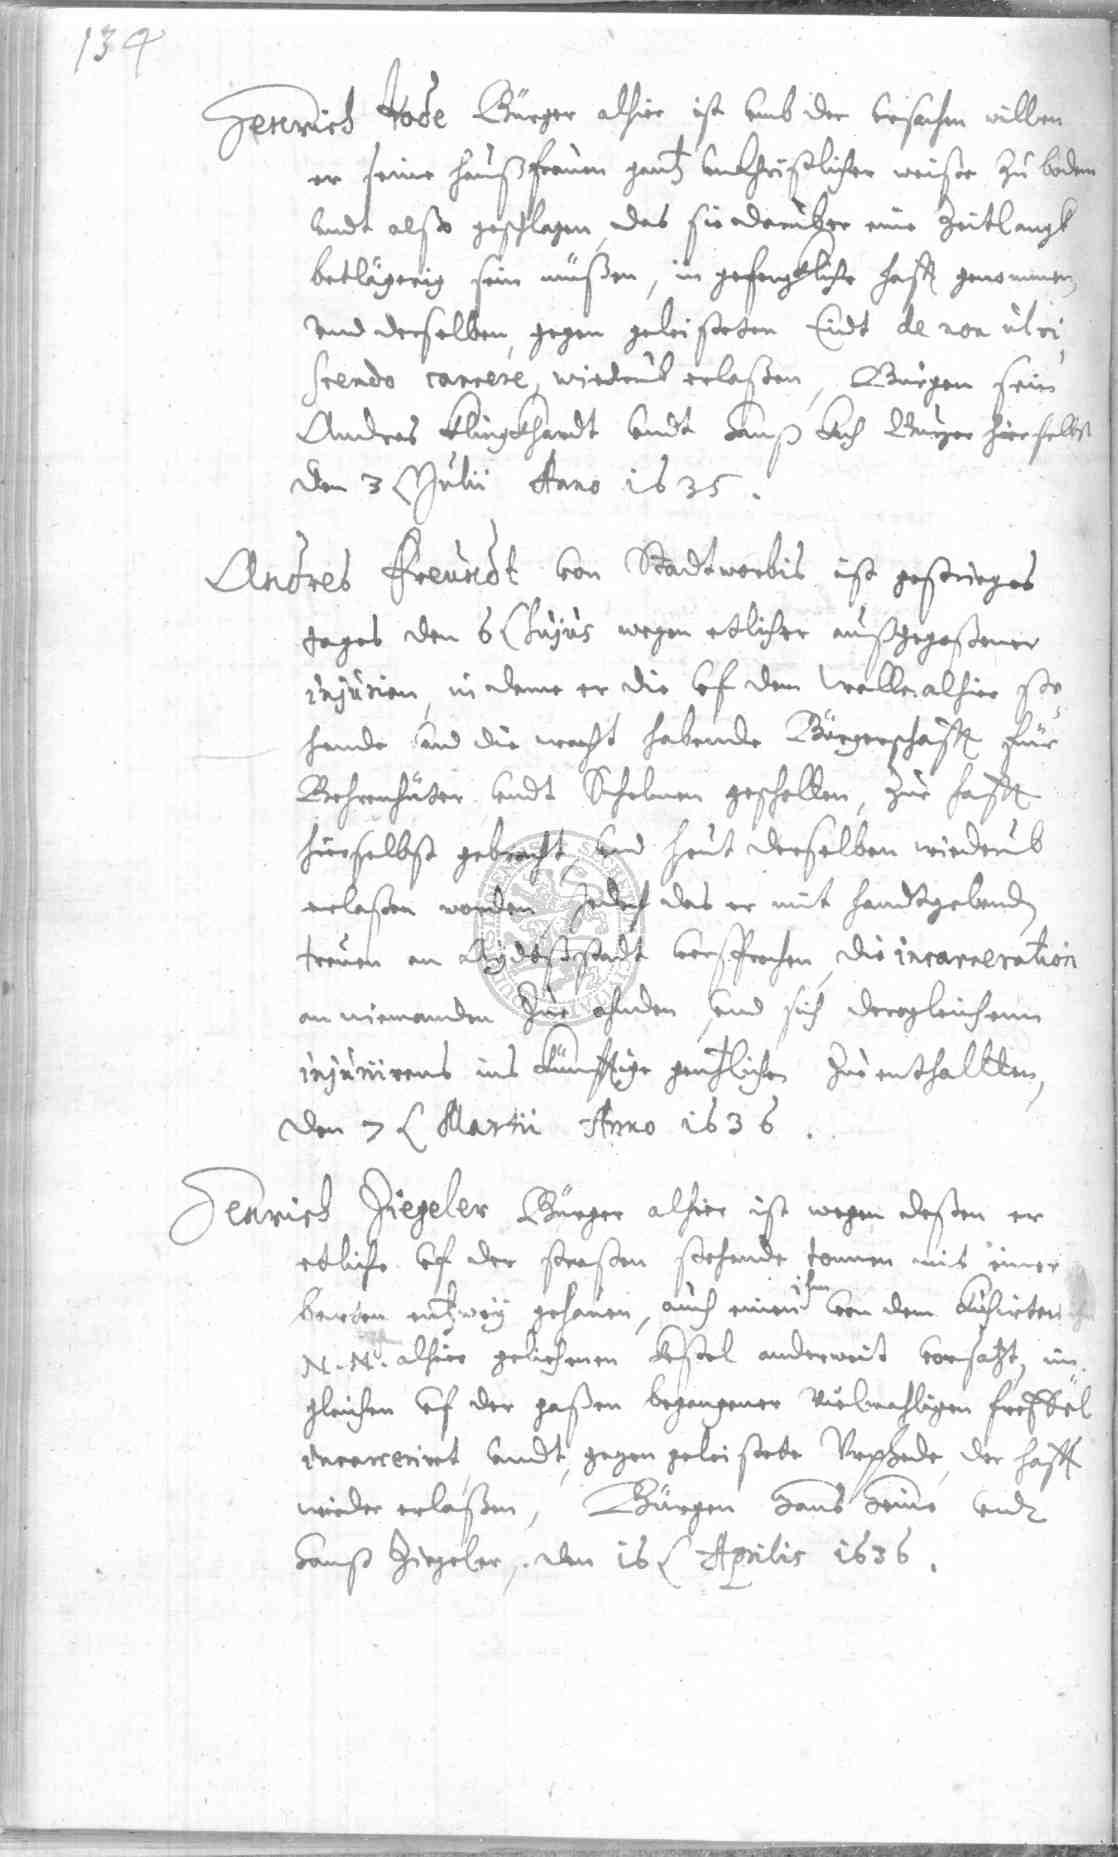 134
Henrich Rode Bürger alhier ist umb der ursachen willen
er seine haußfrauen gantz unchristlicher weiße zu boden
undt alßo geschlagen, das sie darüber eine Zeitlangk
betlägerig sein müßen, in gefengkliche hafft genommen,
und derselben, gegen geleisteten Eidt de non ulci
scendo carcere, wiederumb erlaßen, Burgen sein
Andres Klingkhardt undt Hanß Koch Burger hierselbst
den 3 Julii Anno 1635.
Andres Freundt von Stadtworbis ist gestriges
tages den 6 hujus wegen etlicher außgegoßener
injurien, in deme er die uf dem Walle alhier ste
hende und die wacht habende Bürgerschafft für
Behrenhüter undt Schelmen gescholten, zur hafft
hierselbst gebracht, und heut derselben wiederumb
erlaßen worden Jedoch das er mit handtgebenden
treuen an Eydeßstadt versprochen, die incarceration
an niemanden zue ahnden und sich dergleichenn
injuriirens ins künfftige gentzlichen zue enthaltten,
den 7 Martii Anno 1636.
Henrich Ziegeler Bürger alhier ist wegen deßen er
etliche uf der straßen stehende tonnen mit einer
barten entzwey gehauen, auch einen ihm von dem Kuhirten
N. N. alhier geliehenen keßel anderweit versatzt, im
gleichen uf der gaßen begangener vielmahligen freffel
incarcerirt undt, gegen geleistete Urphede, der hafft
wieder erlaßen, Bürgen Hans Heine undt
Hanß Ziegeler, den 16 Aprilis 1636.